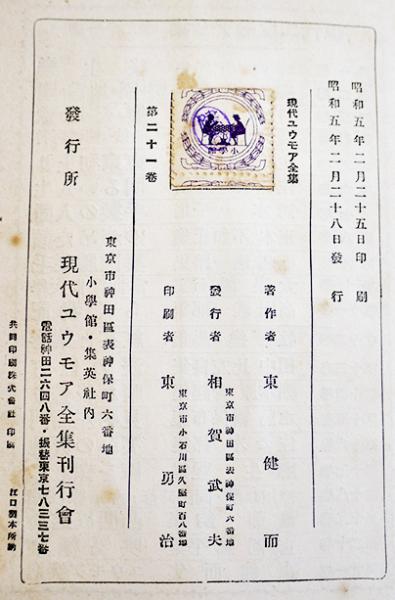 昭和五年二月二十五日印刷
昭和五年二月二十八日發行
現代ユウモア全集
第二十一卷
小學館
著作者 東健而
東京市神田區表神保町六番地
發行者 相賀武夫
東京市小石川區久堅町百八番地
印刷者 東勇治
東京市神田區表神保町六番地
小學館・集英社内
發行所 現代ユウモア全集刊行會
電話神田二六四八番・振替東京七八三三七番
共同印刷株式會社印刷 江口製本所納